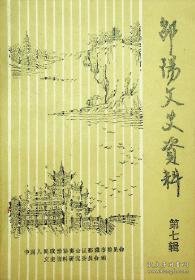 邵阳文史资料
第七辑
中国人民政治协商会议邵阳市委员会
文史资料研究委员会编